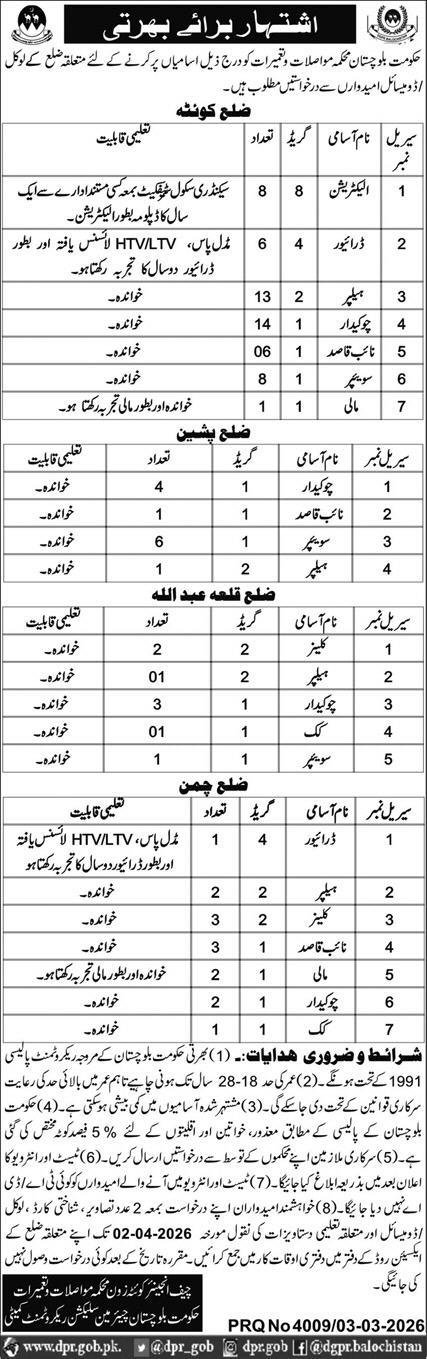 اشتہار برائے بھرتی
حکومت بلوچستان محکمہ مواصلات و تعمیرات کو درج ذیل اسامیاں پر کرنے کے لئے متعلقہ ضلع کے لوکل
/ڈومیسائل امیدواروں سے درخواستیں مطلوب ہیں۔
ضلع کوئٹہ
سیریل نمبر نام آسامی گریڈ تعداد تعلیمی قابلیت
1 الیکٹریشن 8 8 سیکنڈری سکول سرٹیفکیٹ بمعہ کسی مستند ادارے سے ایک
سال کا ڈپلومہ بطور الیکٹریشن۔
2 ڈرائیور 4 6 مڈل پاس، HTV/LTV لائسنس یافتہ اور بطور
ڈرائیور دو سال کا تجربہ رکھتا ہو۔
3 ہیلپر 2 13 خواندہ۔
4 چوکیدار 1 14 خواندہ۔
5 نائب قاصد 1 06 خواندہ۔
6 سویپر 1 8 خواندہ۔
7 مالی 1 1 خواندہ اور بطور مالی تجربہ رکھتا ہو۔
ضلع پشین
سیریل نمبر نام آسامی گریڈ تعداد تعلیمی قابلیت
1 چوکیدار 1 4 خواندہ۔
2 نائب قاصد 1 1 خواندہ۔
3 سویپر 1 6 خواندہ۔
4 ہیلپر 2 1 خواندہ۔
ضلع قلعہ عبداللہ
سیریل نمبر نام آسامی گریڈ تعداد تعلیمی قابلیت
1 کلینر 2 2 خواندہ۔
2 ہیلپر 2 01 خواندہ۔
3 چوکیدار 1 3 خواندہ۔
4 کک 1 01 خواندہ۔
5 سویپر 1 1 خواندہ۔
ضلع چمن
سیریل نمبر نام آسامی گریڈ تعداد تعلیمی قابلیت
1 ڈرائیور 4 1 مڈل پاس، HTV/LTV لائسنس یافتہ
اور بطور ڈرائیور دو سال کا تجربہ رکھتا ہو
2 ہیلپر 2 2 خواندہ۔
3 کلینر 2 3 خواندہ۔
4 نائب قاصد 1 3 خواندہ۔
5 مالی 1 2 خواندہ اور بطور مالی تجربہ رکھتا ہو۔
6 چوکیدار 1 2 خواندہ۔
7 کک 1 2 خواندہ۔
شرائط و ضروری ہدایات:۔ (1) بھرتی حکومت بلوچستان کے مروجہ ریکروٹمنٹ پالیسی
1991 کے تحت ہونگے۔ (2) عمر کی حد 18-28 سال تک ہونی چاہیے تاہم عمر میں بالائی حد کی رعایت
سرکاری قوانین کے تحت دی جاسکے گی۔ (3) مشتہر شدہ آسامیوں میں کمی بیشی ہوسکتی ہے۔ (4) حکومت
بلوچستان کے پالیسی کے مطابق معذور، خواتین اور اقلیتوں کے لئے %5 فیصد کوٹہ مختص کی گئی
ہے۔ (5) سرکاری ملازمین اپنے محکموں کے توسط سے درخواستیں ارسال کریں۔ (6) ٹیسٹ اور انٹرویو کا
اعلان بعد میں بذریعہ ابلاغ کیا جائیگا۔ (7) ٹیسٹ اور انٹرویو میں آنے والے امیدواروں کو کوئی ٹی اے/ڈی
اے نہیں دیا جائیگا۔ (8) خواہشمند امیدواران اپنے درخواست بمعہ 2 عدد تصاویر، شناختی کارڈ، لوکل
/ڈومیسائل اور متعلقہ تعلیمی دستاویزات کی نقول مورخہ 02-04-2026 تک اپنے متعلقہ ضلع کے
ایکسیئن روڈ کے دفتر میں دفتری اوقات کار میں جمع کرائیں۔ مقررہ تاریخ کے بعد کوئی درخواست وصول نہیں
کی جائیگی۔
چیف انجینئر کوئٹہ زون محکمہ مواصلات و تعمیرات
حکومت بلوچستان چیئرمین سلیکشن ریکروٹمنٹ کمیٹی
PRQ No 4009/03-03-2026
www.dpr.gob.pk. @dpr_gob @dgpr.balochistan